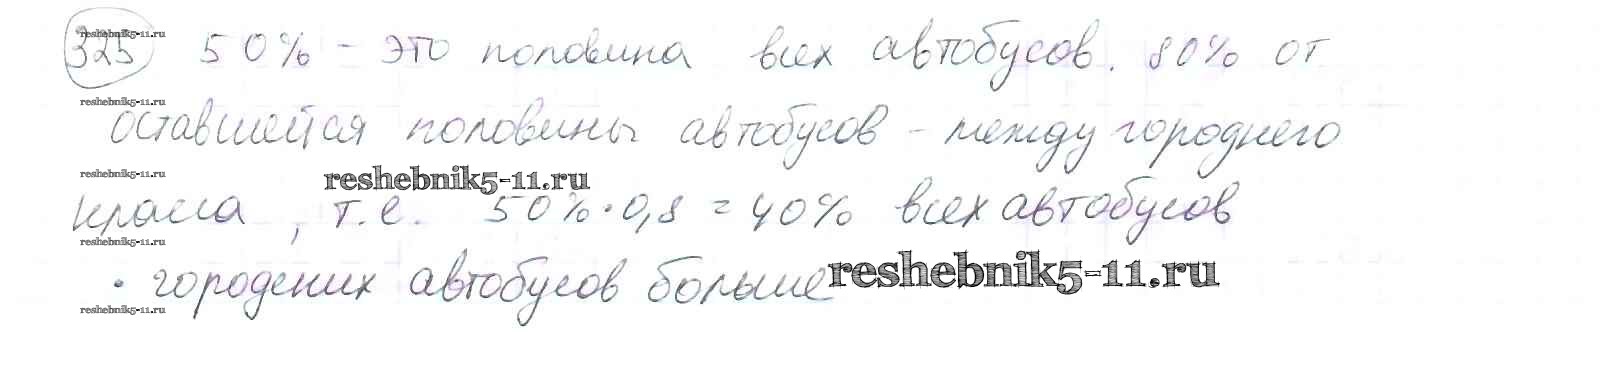 325 50% - это половина всех автобусов. 80% от
reshebnik5-11.ru
reshebnik5-11.ru
оставшейся половины автобусов - между городнего
reshebnik5-11.ru
reshebnik5-11.ru
класса, т.е. 50%·0,8 = 40% всех автобусов
reshebnik5-11.ru
· городских автобусов больше
reshebnik5-11.ru
reshebnik5-11.ru